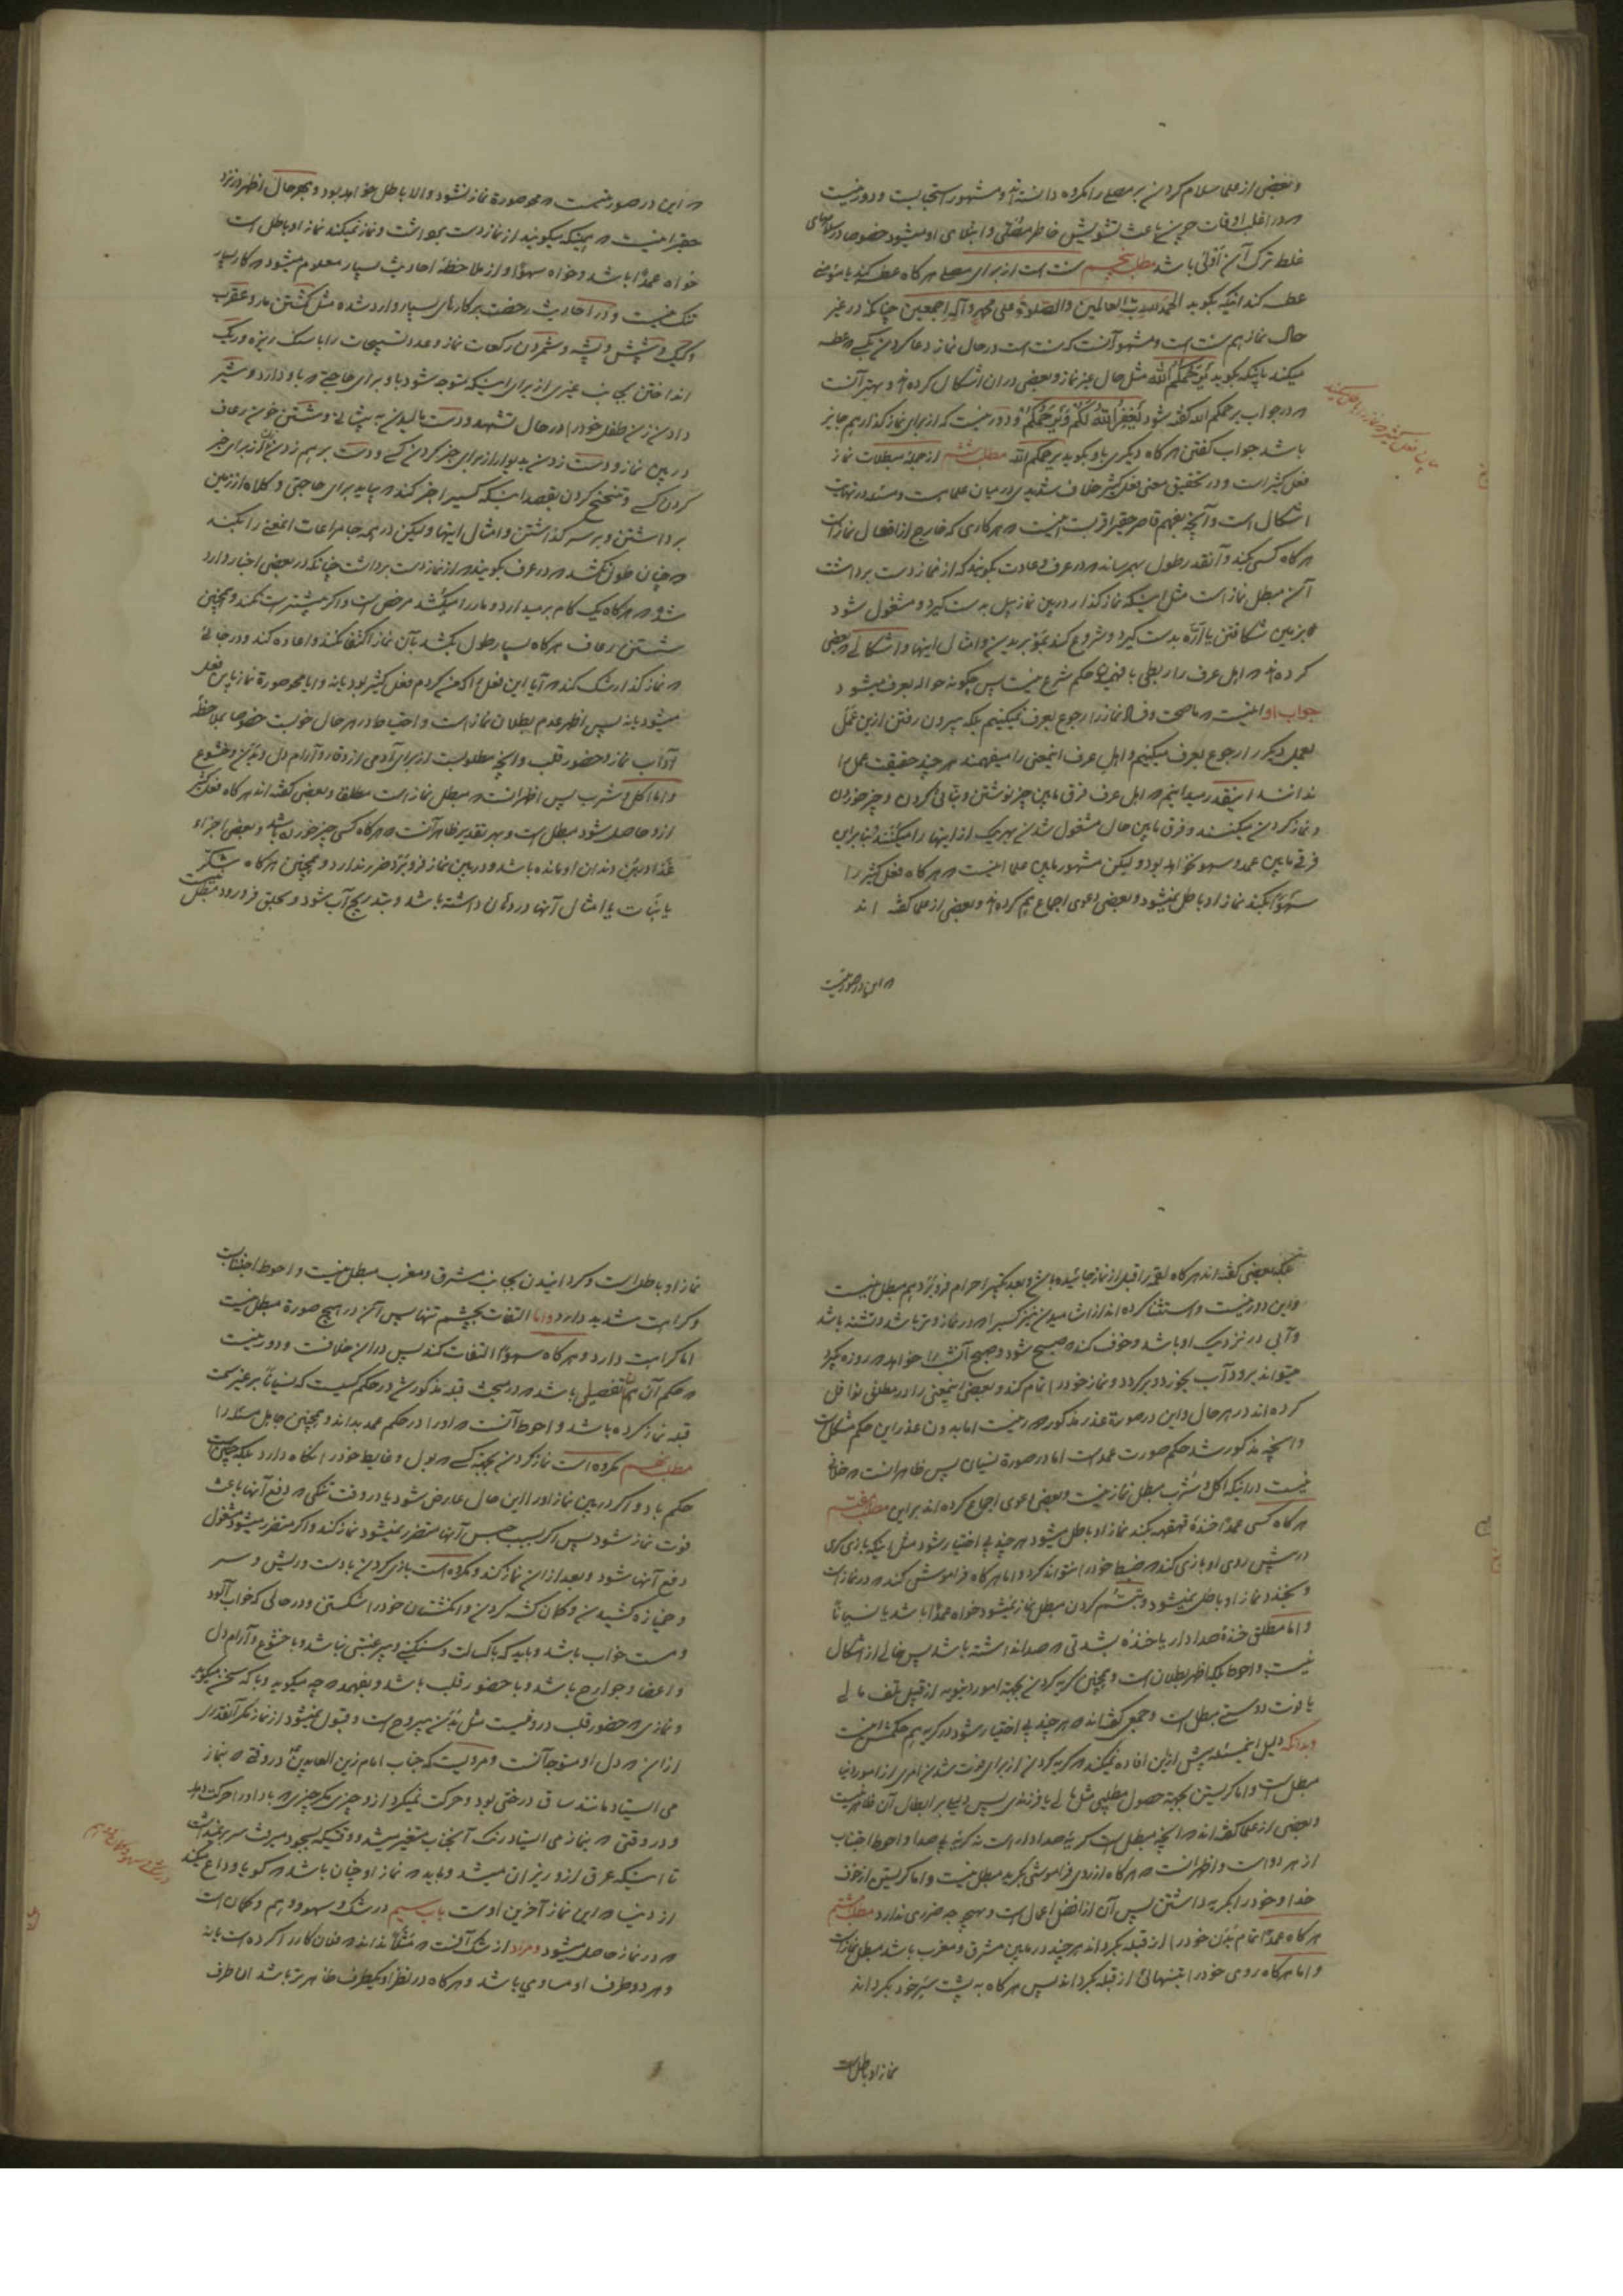 و بعضی از علما سلام کردن بر مصلی را مکروه دانسته‌اند و مشهور استحبابست و دور نیست
که در اغلب اوقات چون باعث تشویش خاطر مصلی و ابتلای او میشود خصوصا در سلامهای
غلط ترک آن اولی باشد مطلب پنجم سنت است از برای مصلی هر کاه عطسه کند یا مؤمنی
عطسه کند اینکه بکوید الحمد لله رب العالمین والصلوة علی محمد وآله اجمعین چنانکه در غیر
حال نماز هم سنت است و مشهور آنست که سنت است در حال نماز دعا کردن بکسی که عطسه
میکند باینکه بکوید یرحمکم الله مثل حال غیر نماز و بعضی در ان اشکال کرده‌اند و بهتر آنست
که در جواب یرحمکم الله کفته شود یغفر الله لکم ویرحمکم و دور نیست که از برای نماز کذار هم جایز
باشد جواب کفتن هر کاه دیکری باو بکوید یرحمکم الله مطلب ششم از جمله مبطلات نماز
فعل کثیر است و در تحقیق معنی فعل کثیر خلاف شدیدی در میان علما هست و مسئله در نهایت
اشکال است و آنچه بفهم قاصر حقیر اقربست اینست که هر کاری که خارج از افعال نماز است
هر کاه کسی بکند و آنقدر طول بهم رساند که در عرف و عادت بکویند که از نماز دست برداشت
آن مبطل نماز است مثل اینکه نماز کذار در بین نماز بیل بدست کیرد و مشغول شود
بزمین شکافتن یا اره بدست کیرد و شروع کند بچوب بریدن و امثال اینها و اشکالی که بعضی
کرده‌اند که اهل عرف را ربطی بافهمیدن حکم شرع نیست پس چکونه حواله بعرف میشود
جواب او اینست که ما صحت و فساد نماز را رجوع بعرف نمیکنیم بلکه بیرون رفتن ازین عمل
بعمل دیکر را رجوع بعرف میکنیم و اهل عرف اینمعنی را میفهمند هر چند حقیقت عمل را
ندانند اینقدر میدانیم که اهل عرف فرق مابین چیز نوشتن و بنائی کردن و چیز خوردن
و نماز کردن میکنند و فرق مابین حال مشغول شدن بهر یک از اینها را میکنند بنابراین
فرقی مابین عمد و سهو نخواهد بود و لیکن مشهور مابین علما اینست که هر کاه فعل کثیر را
سهوا بکند نماز او باطل نمیشود و بعضی دعوی اجماع هم کرده‌اند و بعضی از علما کفته اند
که این در صورتیست
بیان فعل کثیر که نماز را باطل میکند
که این در صورتیست که محو صورة نماز نشود والا باطل خواهد بود و بهر حال اظهر در نزد
حقیر اینست که همینکه میکویند از نماز دست برداشت و نماز نمیکند نماز او باطل است
خواه عمدا باشد و خواه سهوا و از ملاحظه احادیث بسیار معلوم میشود که کار بسیار
تنک نیست و در احادیث رخصت بر کارهای بسیار وارد شده مثل کشتن مار و عقرب
و کیک و شپش و پشه و شمردن رکعات نماز و عدد تسبیحات را با سنک ریزه و ریک
انداختن بجانب غیری از برای اینکه متوجه شود باو برای حاجتی که باو دارد و شیر
دادن زن طفل خود را در حال تشهد و دست مالیدن به پیشانی و شستن خون رعاف
در بین نماز و دست زدن بدیوار از برای خبر کردن کسی و دست بر هم زدن زن از برای خبر
کردن کسی و تنحنح کردن بقصد اینکه کسی را خبر کند که بیاید برای حاجتی و کلاه از زمین
برداشتن و بر سر کذاشتن و امثال اینها و لیکن در همه جا مراعات اینمعنی را بکند
که چنان طول نکشد که در عرف بکویند که از نماز دست برداشت چنانکه در بعضی اخبار وارد
شده که هر کاه یک کام بر میدارد و مار را میکشد مرخص است و اکر بیشتر است نکند و همچنین
شستن رعاف هر کاه بسیار طول بکشد بآن نماز اکتفا نکند و اعاده کند و در جائی
که نماز کذار شک کند که آیا این فعل که من کردم فعل کثیر بود یا نه و آیا محو صورة نماز باین فعل
میشود یا نه پس اظهر عدم بطلان نماز است و احتیاط در هر حال خوبست خصوصا بملاحظه
آداب نماز و حضور قلب و آنچه مطلوبست از برای آدمی از وقار و آرام دل و بدن و خشوع
و اما اکل و شرب پس اظهر انست که مبطل نماز است مطلقا و بعضی کفته اند هر کاه فعل کثیر
ازو حاصل شود مبطل است و بهر تقدیر ظاهر آنست که هر کاه کسی چیز خورده باشد و بعضی اجزاء
غذا در بن دندان او مانده باشد و در بین نماز فرو برد ضرر ندارد و همچنین هر کاه شکر
یا نبات یا امثال آنها در دهان داشته باشد و بتدریج آب شود و بحلق فرو رود مبطل نیست
بلکه بعضی کفته اند هر کاه لقمه را قبل از نماز خائیده باشد و بعد تکبیر احرام فرو برد هم مبطل نیست
و این دور نیست و استثنا کرده اند از آشامیدن چیز کسی را که در نماز وتر باشد و تشنه باشد
و آبی در نزدیک او باشد و خوف کند که صبح شود و صبح آنشب را خواهد که روزه بکیرد
میتواند برود آب بخورد و برکردد و نماز خود را تمام کند و بعضی اینمعنی را در مطلق نوافل
کرده اند در هر حال و این در صورة عذر مذکور دور نیست اما بدون عذر این حکم مشکل است
و آنچه مذکور شد حکم صورت عمد است اما در صورة نسیان پس ظاهر انست که خلافی
نیست در اینکه اکل و شرب مبطل نماز نیست و بعضی دعوی اجماع کرده اند بر این مطلب هفتم
هر کاه کسی عمدا خنده قهقهه بکند نماز او باطل میشود هر چند بی اختیار شود مثل اینکه بازی کری
در پیش روی او بازی کند که ضبط خود را نتواند کرد و اما هر کاه فراموش کند که در نماز است
و بخندد نماز او باطل نمیشود و تبسم کردن مبطل نماز نمیشود خواه عمدا باشد یا نسیانا
و اما مطلق خنده صدا دار یا خنده بشدتی که صدا نداشته باشد پس خالی از اشکال
نیست و احوط بلکه اظهر بطلان است و همچنین کریه کردن بجهة امور دنیویه از قبیل تلف مالی
یا فوت دوستی مبطل است و جمعی کفته‌اند که هر چند بی اختیار شود در کریه هم حکمش اینست
و بدانکه دلیل اینمسئله بیش ازین افاده نمیکند که کریه کردن از برای فوت شدن امری از امور دنیا
مبطل است و اما کریستن بجهة حصول مطلبی مثل مالی یا فرزندی پس دلیلی بر ابطال آن ظاهر نیست
و بعضی از علما کفته اند که انچه مبطل است کریه صدا دار است نه کریه بی صدا و احوط اجتناب
از هر دو است و اظهر انست که هر کاه از روی فراموشی بکرید مبطل نیست و اما کریستن از خوف
خدا و خود را بکریه داشتن پس آن از افضل اعمال است و بهیچ وجه ضرری ندارد مطلب هشتم
هر کاه عمدا تمام بدن خود را از قبله بکرداند هر چند در مابین مشرق و مغرب باشد مبطل نماز است
و اما هر کاه روی خود را بتنهائی از قبله بکرداند پس هر کاه به پشت سر خود بکرداند
نماز او باطل است
نماز او باطل است و کردانیدن بجانب مشرق و مغرب مبطل نیست و احوط اجتناب است
و کراهت شدید دارد و اما التفات بچشم تنها پس آن در هیچ صورة مبطل نیست
اما کراهت دارد و هر کاه سهوا التفات کند پس در ان خلافست و دور نیست
که حکم آن هم بتفصیلی باشد که در مبحث قبله مذکور شد در حکم کسیکه نسیانا بر غیر سمت
قبله نماز کرده باشد و احوط آنست که او را در حکم عمد بداند و همچنین جاهل مسئله را
مطلب نهم مکروه است نماز کردن بجهة کسی که بول و غایط خود را نکاه دارد بلکه چنین است
حکم باد و اکر در بین نماز او را این حال عارض شود یا در وقت تنکی که دفع آنها باعث
فوت نماز شود پس اکر بسبب حبس آنها متضرر نمیشود نماز کند و اکر متضرر میشود مشغول
دفع آنها شود و بعد از ان نماز کند و مکروه است بازی کردن با دست و ریش و سر
و خمیازه کشیدن و کمان کشه کردن و انکشتان خود را شکستن و در حالی که خواب آلود
و مست خواب باشد و باید که با کسالت و سنکینی و بی رغبتی نباشد و با خشوع و آرام دل
و اعضا و جوارح باشد و با حضور قلب باشد و بفهمد که چه میکوید و با که سخن میکوید
و نمازی که حضور قلب درو نیست مثل بدن بیروح است و قبول نمیشود از نماز مکر آنقدر
از ان که دل او متوجه آنست و مرویست که جناب امام زین العابدین در وقتی که بنماز
می ایستاد مانند ساق درختی بود و حرکت نمیکرد ازو چیزی مکر چیزی که باد او را حرکت دهد
و در وقتی که بنماز می ایستاد رنک آنجناب متغیر میشد و وقتیکه بسجود میرفت سر بر نمیداشت
تا اینکه عرق ازو ریزان میشد و باید که نماز او چنان باشد که کویا وداع میکند
از دنیا که این نماز آخرین اوست باب سیم در شک و سهو و وهم و کمان است
که در نماز حاصل میشود و مراد از شک آنست که مثلا نداند که فلان کار را کرده است یا نه
و هر دو طرف او مساوی باشد و هر کاه در نظر او یکطرف ظاهرتر باشد ان طرف
در شک و سهو و کمان و وهم